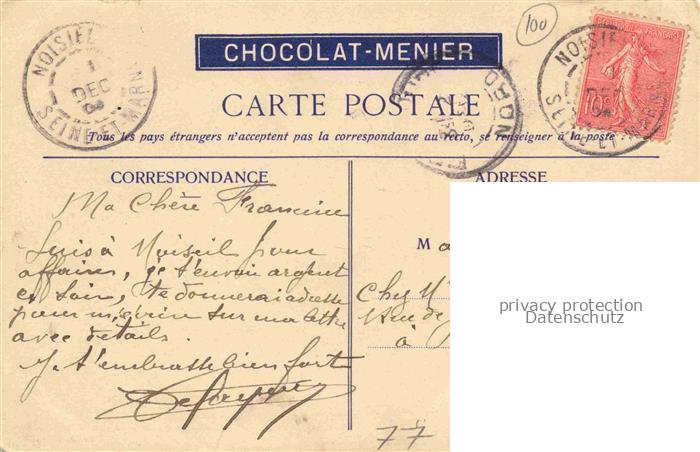 100
CHOCOLAT-MENIER
NOISIEL
1
DEC
SEINE-ET-MARNE
NORD
NOISIEL
SEINE-ET-MARNE
10
CARTE POSTALE
Tous les pays étrangers n'acceptent pas la correspondance au recto, se renseigner à la poste
CORRESPONDANCE
ADRESSE
Ma Chère Francine
Suis à Noiseil pour
affaires, je t'envoi argent
ce soir, te donnerai adresse
pour m'écrire sur ma lettre
avec détails.
Je t'embrasse bien fort
Ma
Chez M
rue de
à
privacy protection
Datenschutz
77